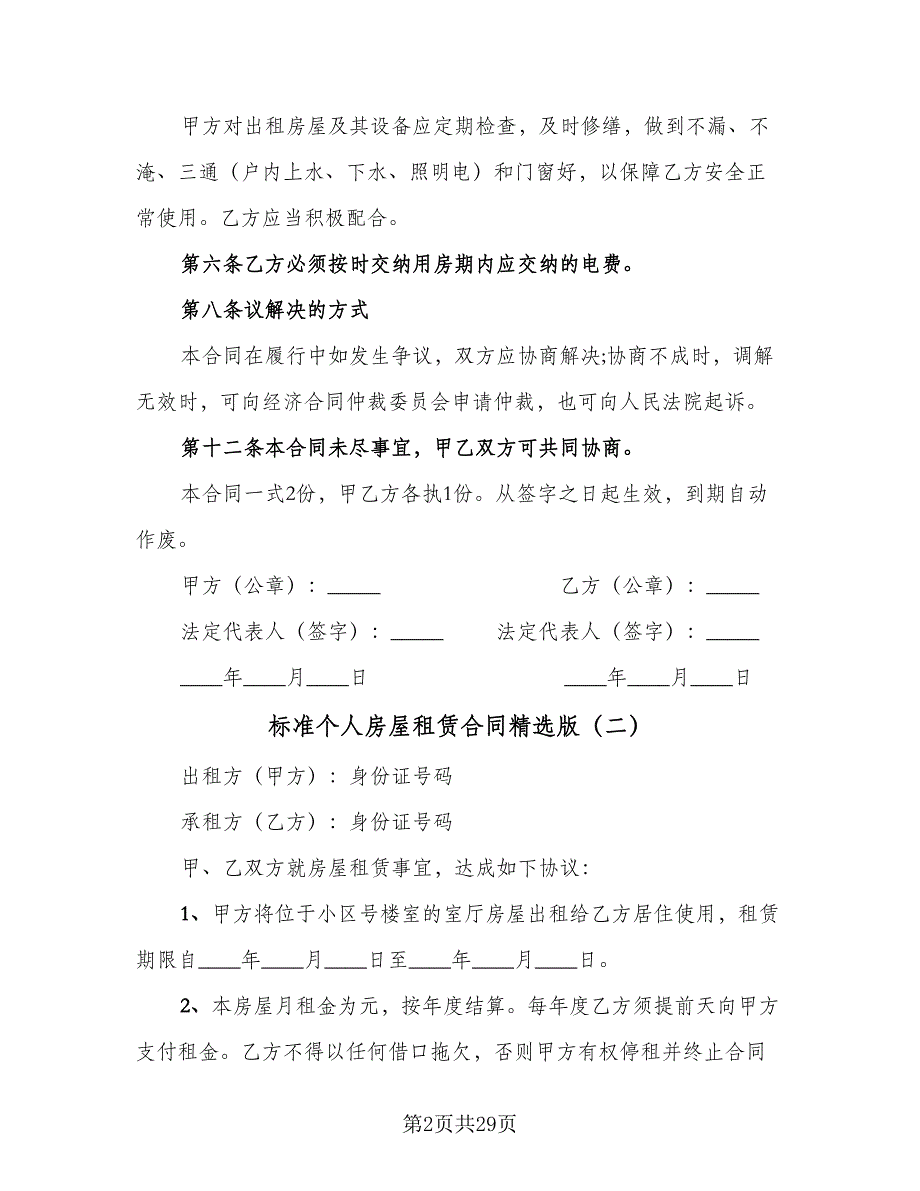 甲方对出租房屋及其设备应定期检查，及时修缮，做到不漏、不
淹、三通（户内上水、下水、照明电）和门窗好，以保障乙方安全正
常使用。乙方应当积极配合。
第六条乙方必须按时交纳用房期内应交纳的电费。
第八条议解决的方式
本合同在履行中如发生争议，双方应协商解决;协商不成时，调解
无效时，可向经济合同仲裁委员会申请仲裁，也可向人民法院起诉。
第十二条本合同未尽事宜，甲乙双方可共同协商。
本合同一式2份，甲乙方各执1份。从签字之日起生效，到期自动
作废。
甲方（公章）：_____ 乙方（公章）：_____
法定代表人（签字）：_____ 法定代表人（签字）：_____
____年____月____日 ____年____月____日
标准个人房屋租赁合同精选版（二）
出租方（甲方）：身份证号码
承租方（乙方）：身份证号码
甲、乙双方就房屋租赁事宜，达成如下协议：
1、甲方将位于小区号楼室的室厅房屋出租给乙方居住使用，租赁
期限自____年____月____日至____年____月____日。
2、本房屋月租金为元，按年度结算。每年度乙方须提前天向甲方
支付租金。乙方不得以任何借口拖欠，否则甲方有权停租并终止合同
第2页共29页